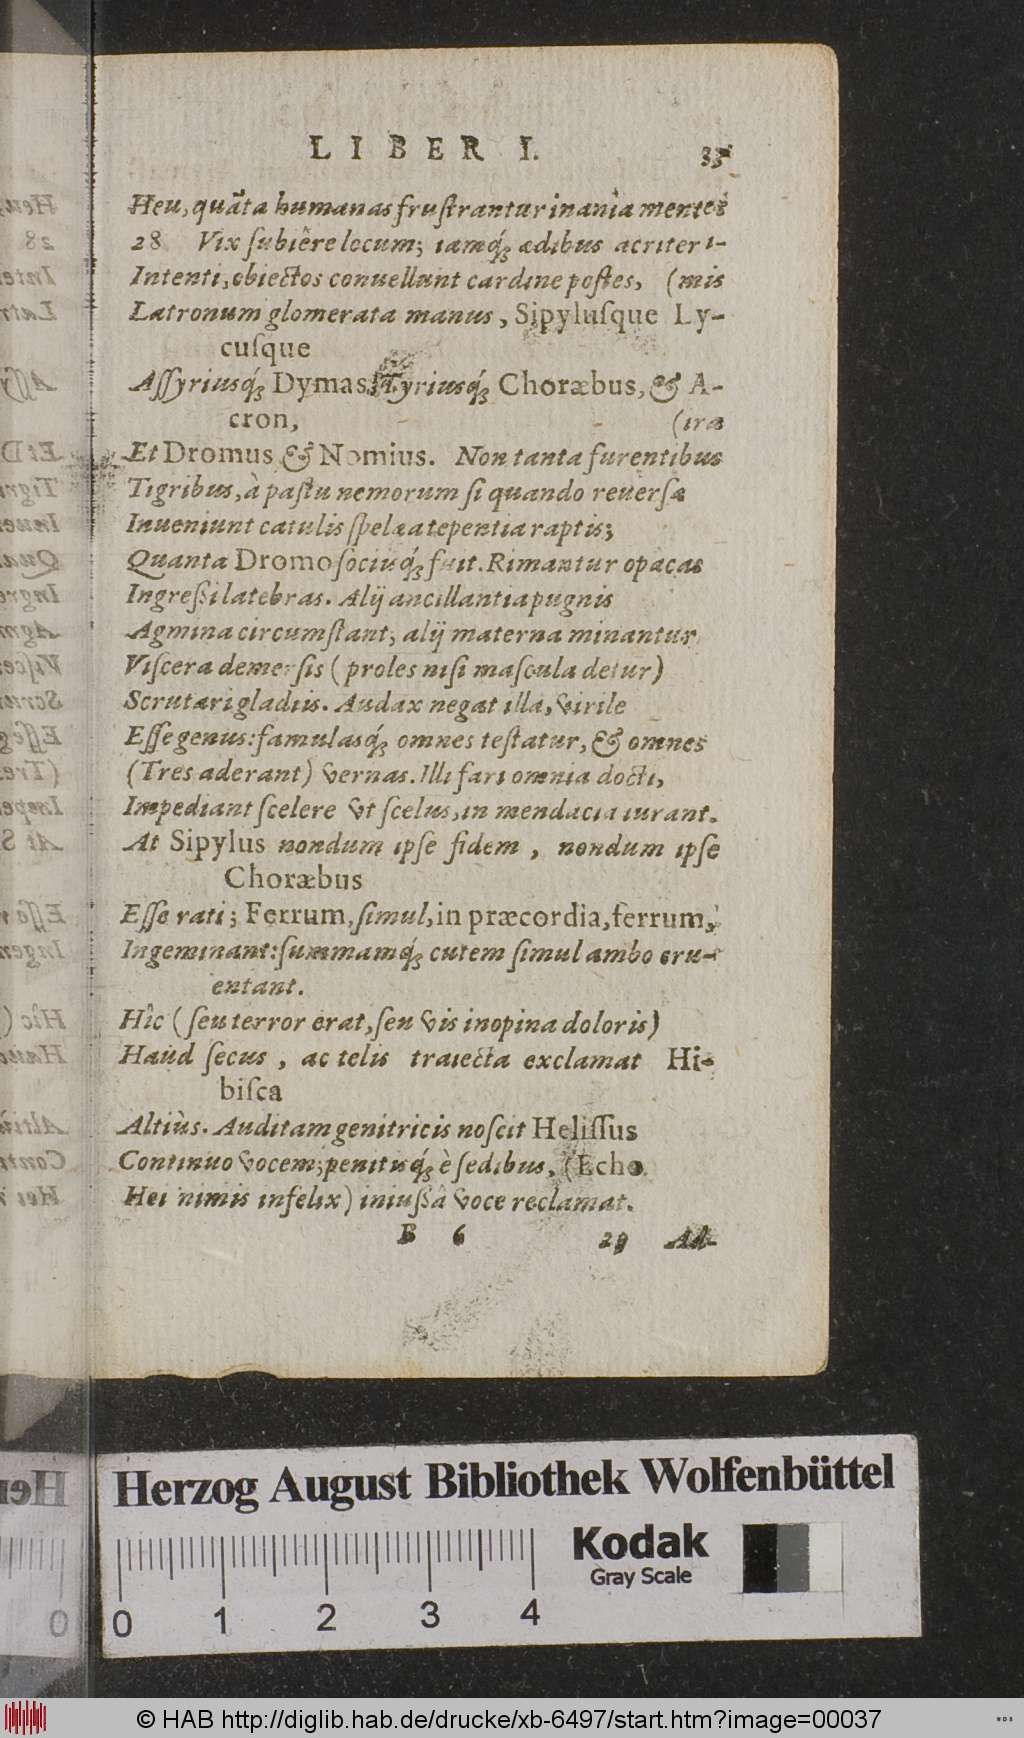 LIBER I. 33
Heu, quãta humanas frustrantur inania mentes
28 Vix subiêre locum; iamq́; ædibus acriter i-
Intenti, obiectos conuellunt cardine postes, (mis
Latronum glomerata manus, Sipylusque Ly-
cusque
Assyriusq́; Dymas, Tyriusq́; Choræbus, & A-
cron, (iræ
Et Dromus & Nomius. Non tanta furentibus
Tigribus, à pastu nemorum si quando reuersæ
Inueniunt catulis spelæa tepentia raptis;
Quanta Dromo sociisq́; fuit. Rimantur opacas
Ingressi latebras. Alij ancillantia pugnis
Agmina circumstant; alij materna minantur
Viscera demersis (proles nisi mascula detur)
Scrutari gladiis. Audax negat illa, virile
Esse genus: famulasq́; omnes testatur, & omnes
(Tres aderant) vernas. Illi fari omnia docti,
Impediant scelere vt scelus, in mendacia iurant.
At Sipylus nondum ipse fidem, nondum ipse
Choræbus
Esse rati; Ferrum, simul, in præcordia, ferrum,
Ingeminant: summamq́; cutem simul ambo cru-
entant.
Hîc (seu terror erat, seu vis inopina doloris)
Haud secus, ac telis traiecta exclamat Hi-
bisca
Altiùs. Auditam genitricis noscit Helissus
Continuo vocem; penitusq́; è sedibus, (Echo
Hei nimis infelix) iniussâ voce reclamat.
B 6 29 Ad-
Herzog August Bibliothek Wolfenbüttel
Kodak
Gray Scale
0 0 1 2 3 4
© HAB http://diglib.hab.de/drucke/xb-6497/start.htm?image=00037